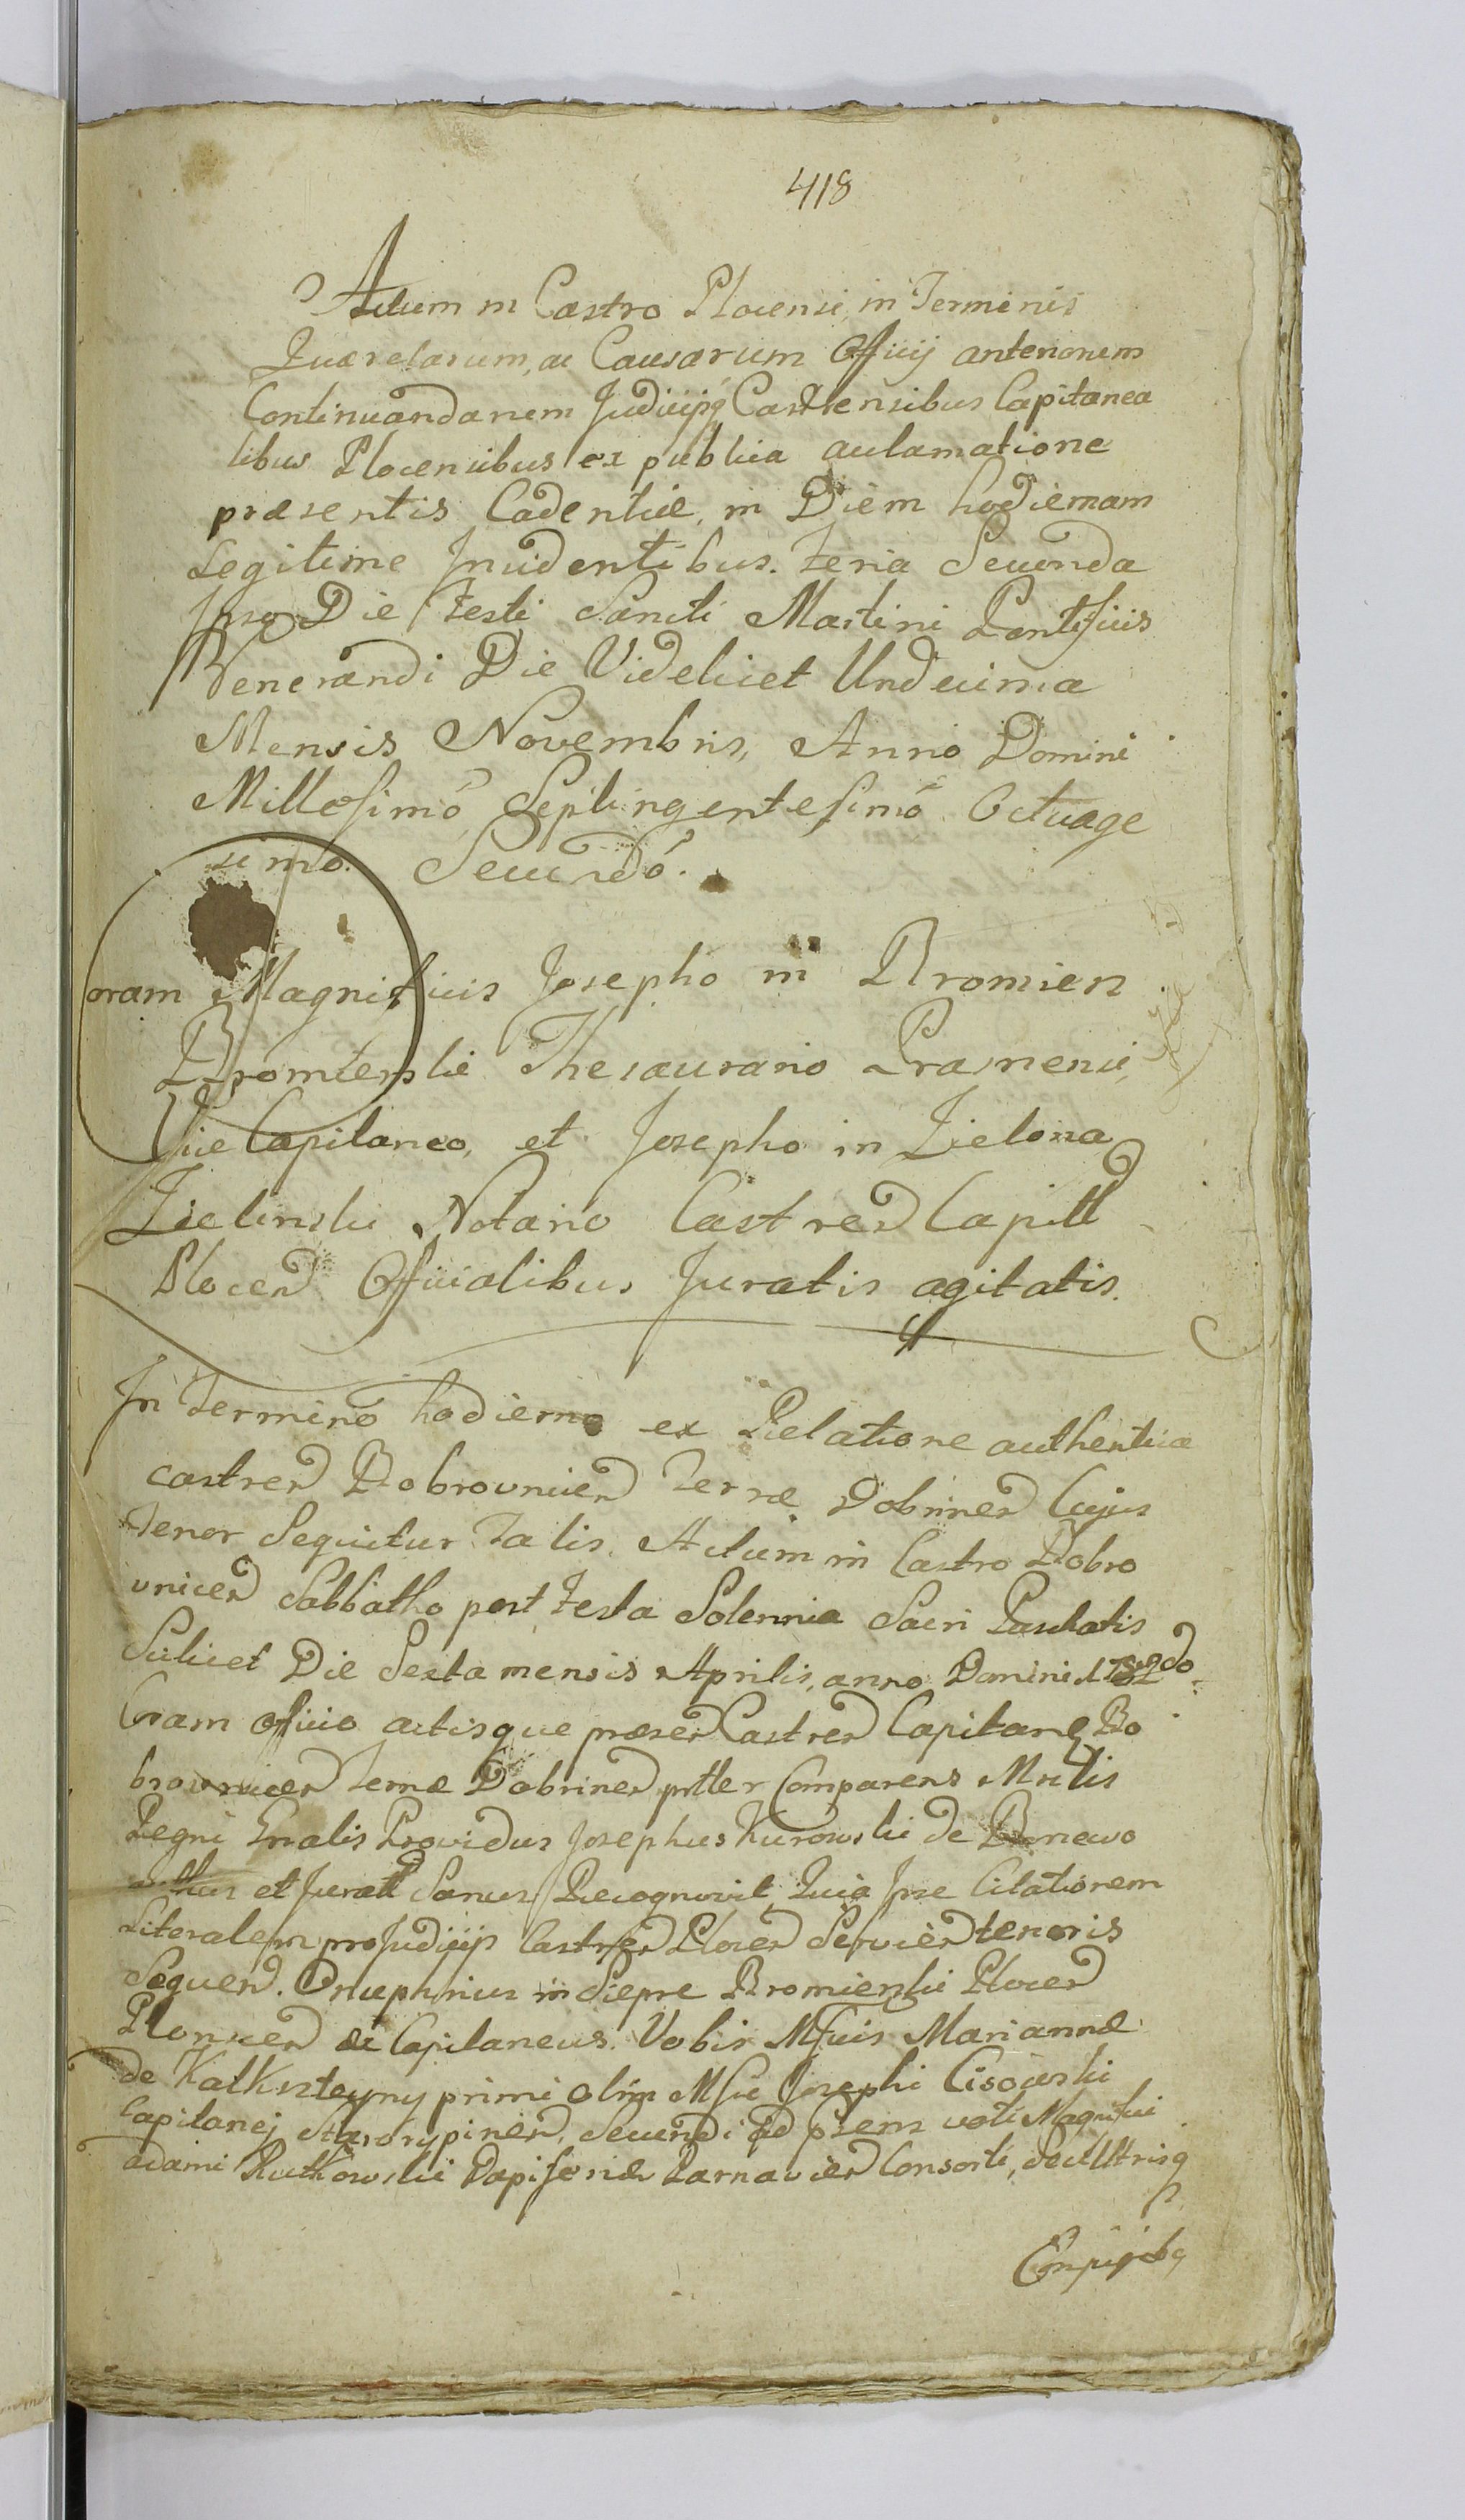 418
Actum in Castro Plocensi, in Terminis
Quærelarum, ac Causarum Officij anteriorum
Continuandarum Judicijsq Castrensibus Capitanea
libus Plocensibus ex publica acclamatione
præsentis Cadentiæ, in Diem hodiernam
Legitime Incidentibus. Feria Secunda
Ipso Die Festi Sancti Martini Pontificis
Venerandi Die Videlicet Undecima
Mensis Novembris, Anno Domini
Millesimo Septingentesimo Octuage
simo. Secundo.
Coram Magnificis Josepho in Bromierz
Bromierski Thesaurario Prasnensi,
Vice Capitaneo, et Josepho in Zielona
Zielinski Notario Castren Capitl
Plocen Officialibus Juratis agitatis.
In Termino hodierno ex Relatione authentica
castren Bobrovnicen Terræ Dobrinen Cujus
Tenor Sequitur Talis. Actum in Castro Bobro
vnicen Sabbatho post Festa Solennia Sacri Paschatis
Scilicet Die Sexta mensis Aprilis, anno Domini 1782do.
Coram Officio actisque præsen Castren Capitane Bo
brovnicen Terræ Dobrinen prtler Comparens Mnrlis
Regni Gnalis Providus Josephus Kurowski de
et Jurat Sanus Recognovit, Quia Ipse Citationem
Literalem pro Judicijs Castren Plocen Servien tenoris
Sequen. Onuphrius in Siepre Bromierski Plocen
Plonscen &c Capitaneus. Vobis Mficis Mariannæ
de Kalksteyny primi olim Mfci Josephi Cisowski
Capitanej Sierorypinen, Secundi ad præsens voti Magnifici
Adami Rutkowski Dapiferidæ Parnavien Consorti,